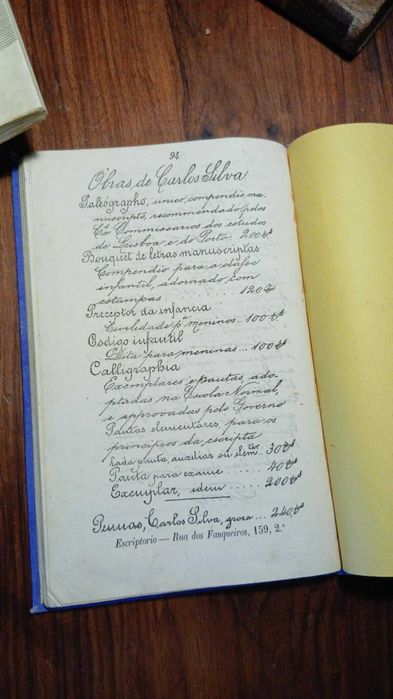 94
Obras de Carlos Silva
Paleógrapho, unico compendio ma-
nuscripto, recommendado pelos
Ex.ᵒˢ Commissarios dos estudos
de Lisboa e do Porto. 200 rs
Bouquet de letras manuscriptas
Compendio para a classe
infantil, adornado com
estampas. ......... 120 rs
Preceptor da infancia
Civilidade pª meninos .. 100 rs
Código infantil
Dita para meninas ... 100 rs
Calligraphia
Exemplares e pautas ado-
ptadas na Escola Normal,
e approvadas pelo Governo
Pautas elementares para os
principios da escripta
Cada pauta, auxiliar ou elem.ᵗᵃʳ 30 rs
Pauta para exame ..... 40 rs
Exemplar, idem ...... 200 rs
Pennas, Carlos Silva, groza ... 240 rs
Escriptorio — Rua dos Fanqueiros, 159, 2.º